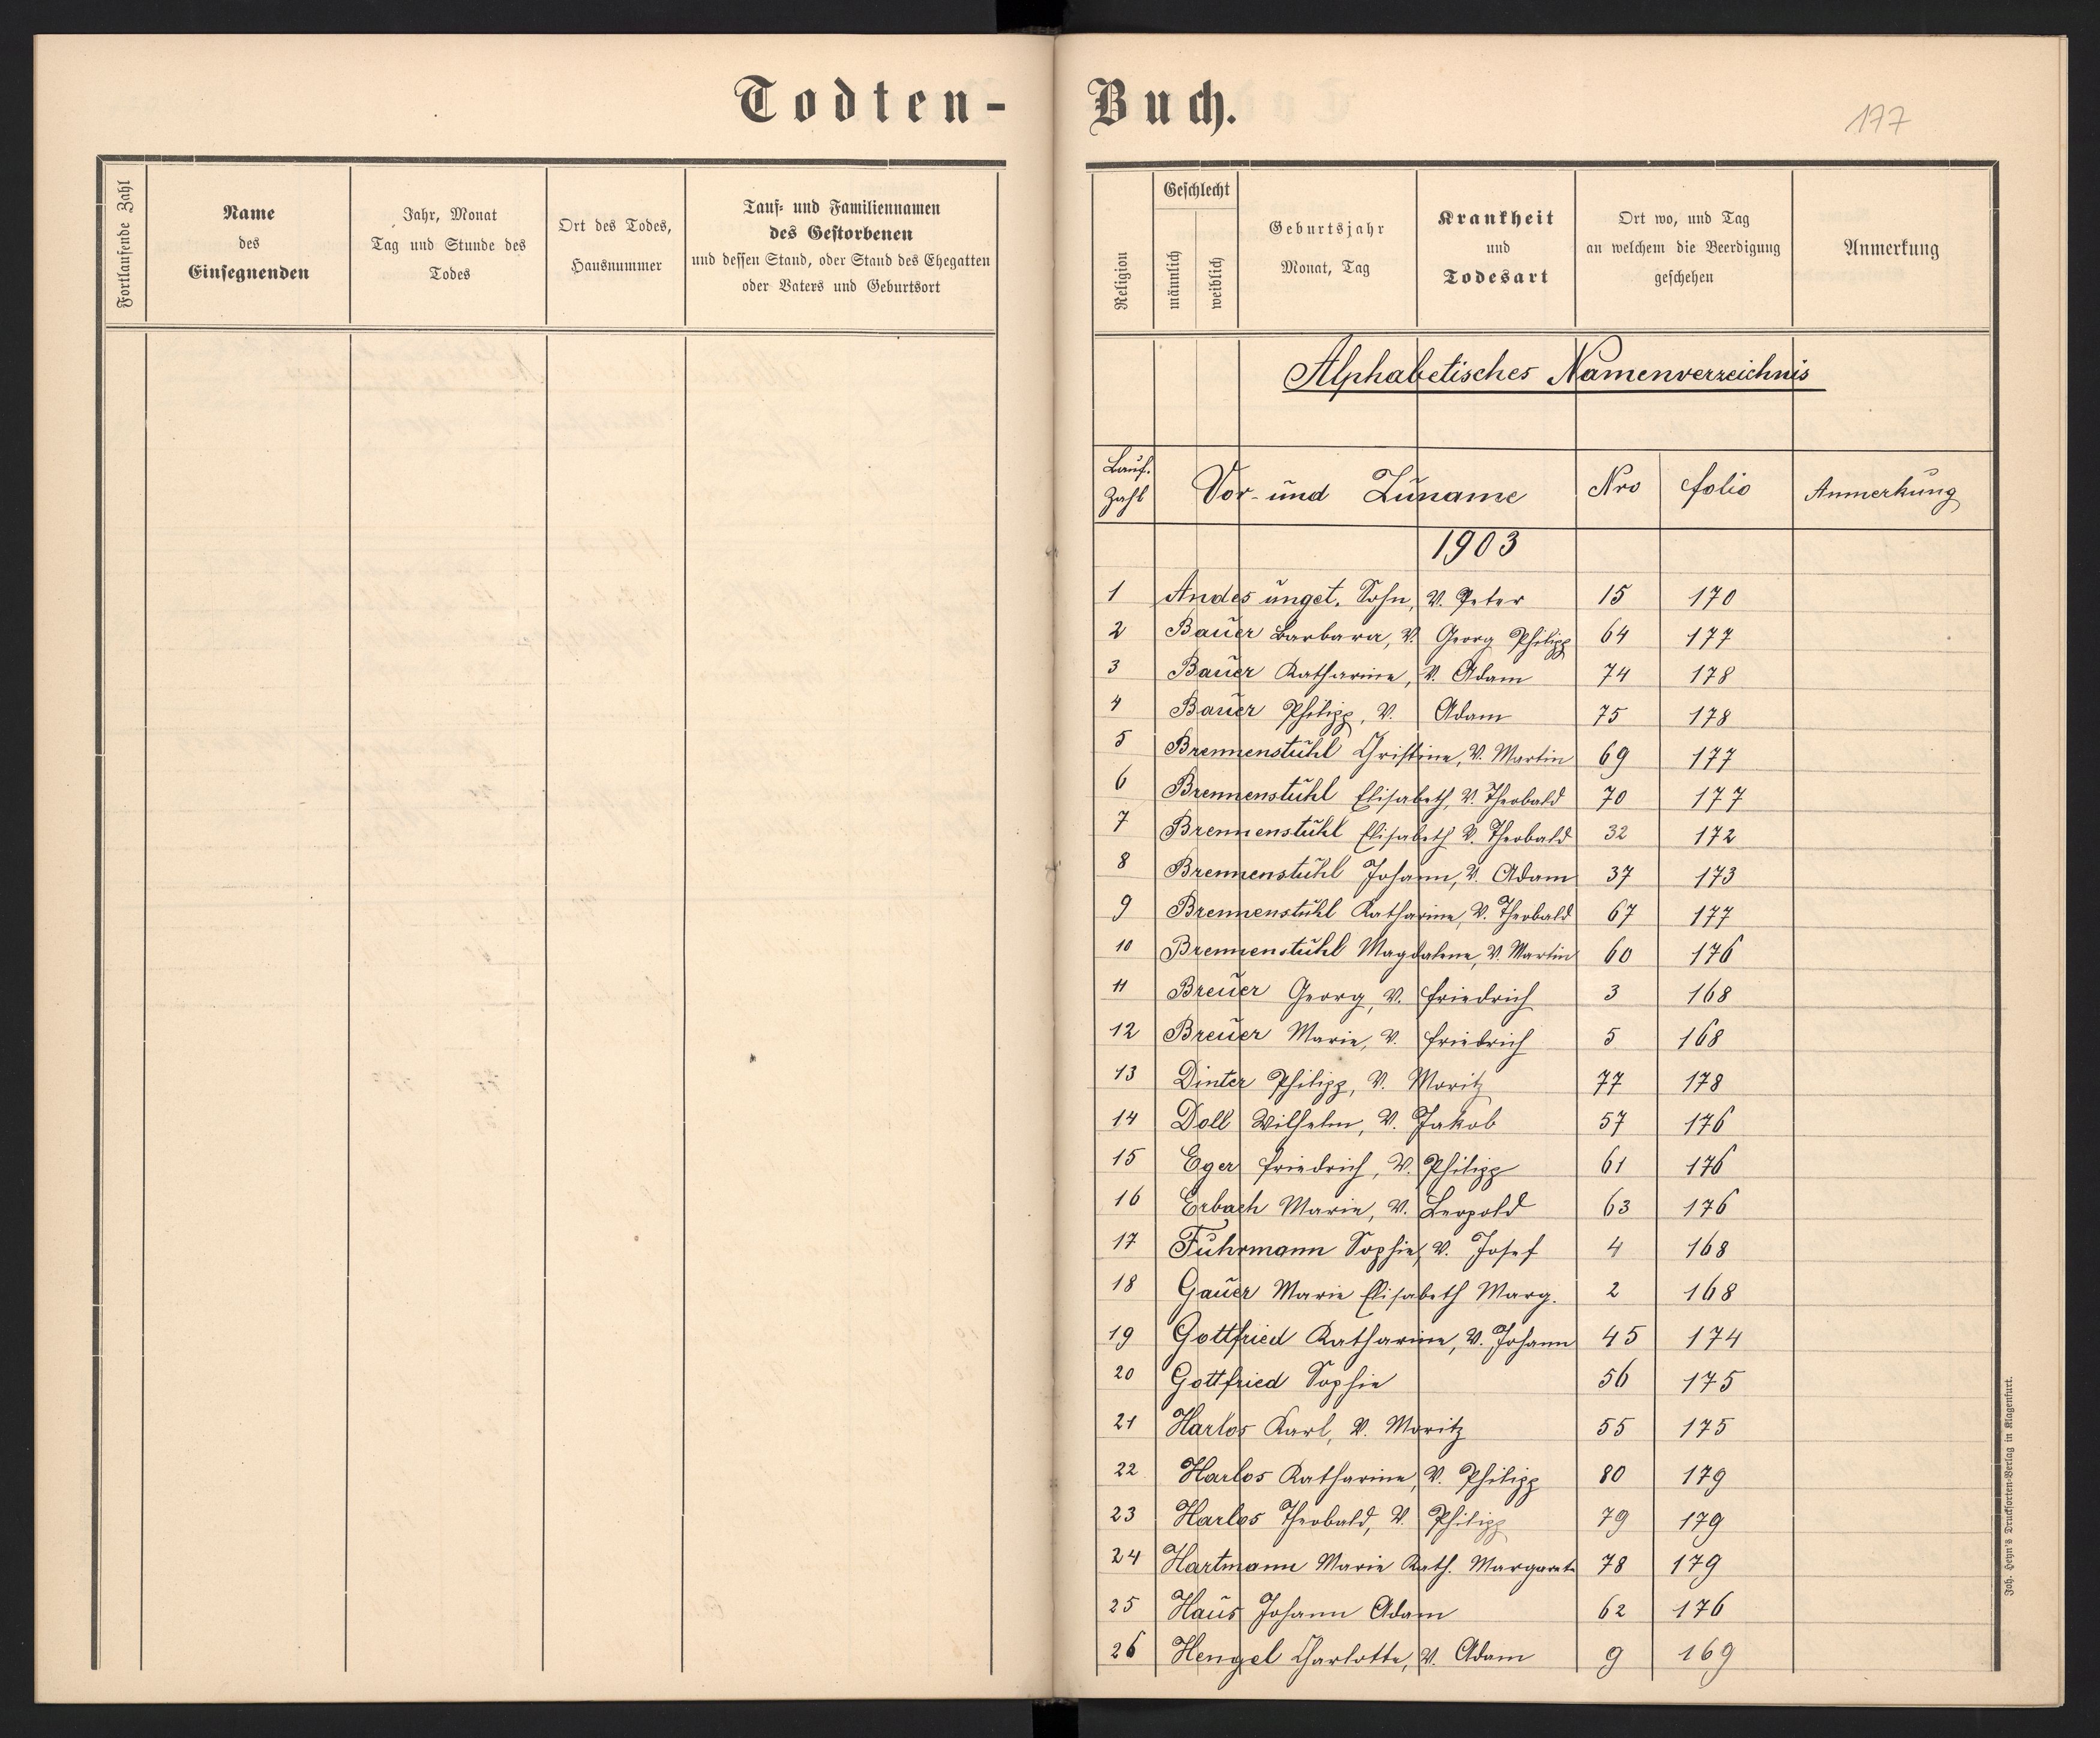 Todten-
Fortlaufende Zahl
Name
des
Einsegnenden
Jahr, Monat
Tag und Stunde des
Todes
Ort des Todes,
Hausnummer
Tauf- und Familiennamen
des Gestorbenen
und dessen Stand, oder Stand des Ehegatten
oder Vaters und Geburtsort
Buch.
177
Religion
Geschlecht
männlich
weiblich
Geburtsjahr
Monat, Tag
Krankheit
und
Todesart
Ort wo, und Tag
an welchem die Beerdigung
geschehen
Anmerkung
Alphabetisches Namenverzeichnis
Lauf. Zahl Vor- und Zuname Nro folio Anmerkung
1903
1 Andes unget. Sohn, V. Peter 15 170
2 Bauer Barbara, V. Georg Philipp 64 177
3 Bauer Katharine, V. Adam 74 178
4 Bauer Philipp, V. Adam 75 178
5 Brennenstuhl Christine, V. Martin 69 177
6 Brennenstuhl Elisabeth, V. Theobald 70 177
7 Brennenstuhl Elisabeth V. Theobald 32 172
8 Brennenstuhl Johann, V. Adam 37 173
9 Brennenstuhl Katharine, V. Theobald 67 177
10 Brennenstuhl Magdalene, V. Martin 60 176
11 Breuer Georg, V. Friedrich 3 168
12 Breuer Marie, V. Friedrich 5 168
13 Dinter Philipp, V. Moritz 77 178
14 Doll Wilhelm, V. Jakob 57 176
15 Eger Friedrich, V. Philipp 61 176
16 Erbach Marie, V. Leopold 63 176
17 Fuhrmann Sophie, V. Josef 4 168
18 Gauer Marie Elisabeth Marg. 2 168
19 Gottfried Katharine, V. Johann 45 174
20 Gottfried Sophie 56 175
21 Harlos Karl, V. Moritz 55 175
22 Harlos Katharine, V. Philipp 80 179
23 Harlos Theobald, V. Philipp 79 179
24 Hartmann Marie Kath. Margarete 78 179
25 Haus Johann Adam 62 176
26 Hengel Charlotte, V. Adam 9 169
Joh. Heyn's Drucksorten-Verlag in Klagenfurt.